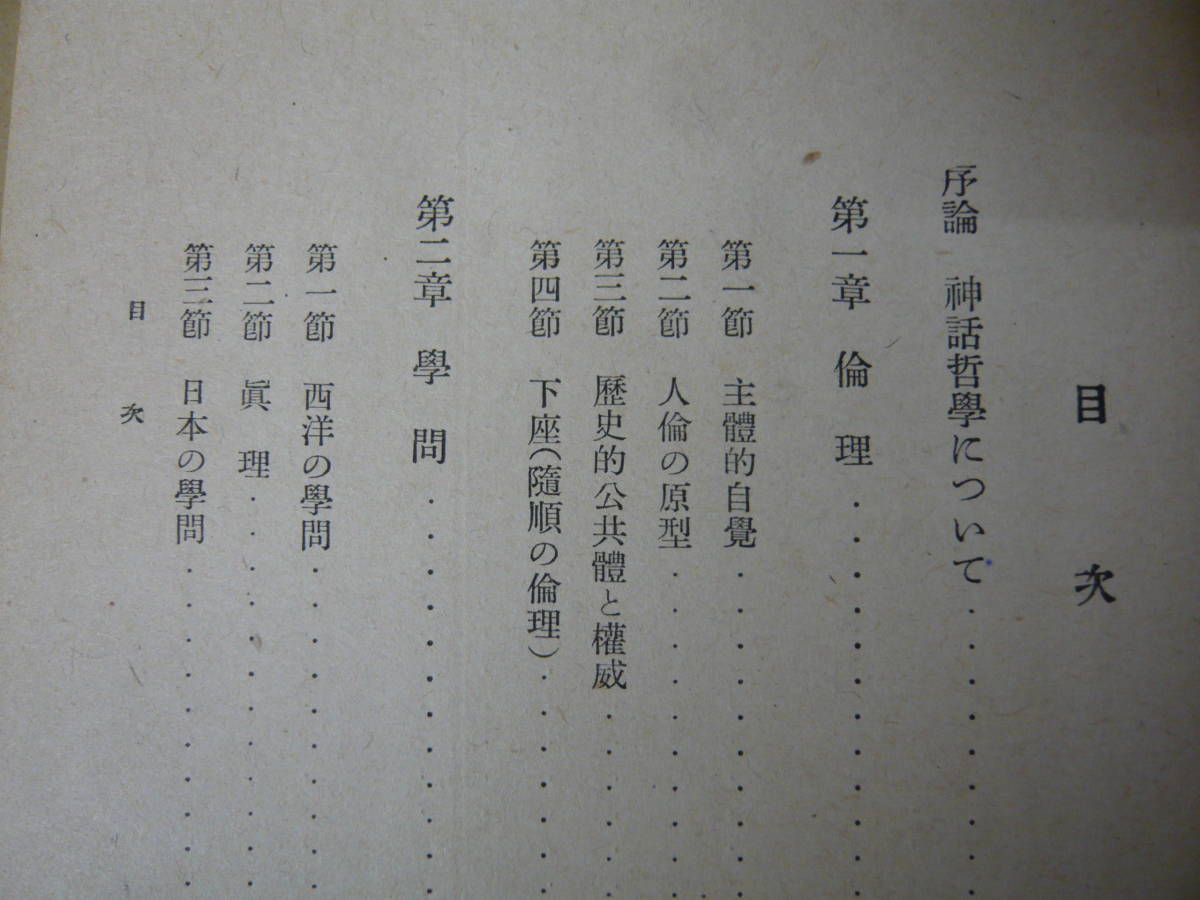 目次
序論 神話哲學について
第一章 倫理
第一節 主體的自覺
第二節 人倫の原型
第三節 歷史的公共體と權威
第四節 下座(隨順の倫理)
第二章 學問
第一節 西洋の學問
第二節 眞理
第三節 日本の學問
目次